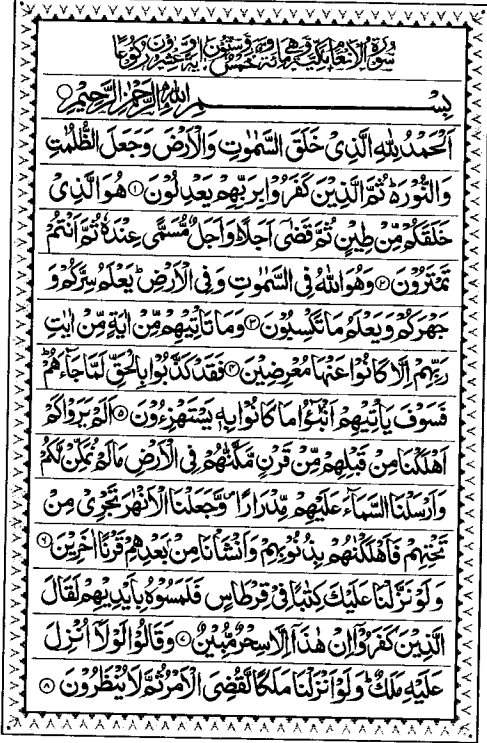 سُوْرَةُ الْاَنْعَامِ مَكِّيَّةٌ وَّهِيَ مِائَةٌ وَّخَمْسٌ وَّسِتُّوْنَ اٰيَةً وَّعِشْرُوْنَ رُكُوْعًا
بِسْمِ اللّٰهِ الرَّحْمٰنِ الرَّحِيْمِ ○
اَلْحَمْدُ لِلّٰهِ الَّذِىْ خَلَقَ السَّمٰوٰتِ وَالْاَرْضَ وَجَعَلَ الظُّلُمٰتِ
وَالنُّوْرَ ؕ ثُمَّ الَّذِيْنَ كَفَرُوْا بِرَبِّهِمْ يَعْدِلُوْنَ ۝۱ هُوَ الَّذِىْ
خَلَقَكُمْ مِّنْ طِيْنٍ ثُمَّ قَضٰٓى اَجَلًا ؕ وَاَجَلٌ مُّسَمًّى عِنْدَهٗ ثُمَّ اَنْتُمْ
تَمْتَرُوْنَ ۝۲ وَهُوَ اللّٰهُ فِى السَّمٰوٰتِ وَفِى الْاَرْضِ ؕ يَعْلَمُ سِرَّكُمْ وَ
جَهْرَكُمْ وَيَعْلَمُ مَا تَكْسِبُوْنَ ۝۳ وَمَا تَاْتِيْهِمْ مِّنْ اٰيَةٍ مِّنْ اٰيٰتِ
رَبِّهِمْ اِلَّا كَانُوْا عَنْهَا مُعْرِضِيْنَ ۝۴ فَقَدْ كَذَّبُوْا بِالْحَقِّ لَمَّا جَآءَهُمْ ؕ
فَسَوْفَ يَاْتِيْهِمْ اَنْۢبٰٓؤُا مَا كَانُوْا بِهٖ يَسْتَهْزِءُوْنَ ۝۵ اَلَمْ يَرَوْا كَمْ
اَهْلَكْنَا مِنْ قَبْلِهِمْ مِّنْ قَرْنٍ مَّكَّنّٰهُمْ فِى الْاَرْضِ مَا لَمْ نُمَكِّنْ لَّكُمْ
وَاَرْسَلْنَا السَّمَآءَ عَلَيْهِمْ مِّدْرَارًا ۪ وَّجَعَلْنَا الْاَنْهٰرَ تَجْرِىْ مِنْ
تَحْتِهِمْ فَاَهْلَكْنٰهُمْ بِذُنُوْبِهِمْ وَاَنْشَاْنَا مِنْۢ بَعْدِهِمْ قَرْنًا اٰخَرِيْنَ ۝۶
وَلَوْ نَزَّلْنَا عَلَيْكَ كِتٰبًا فِىْ قِرْطَاسٍ فَلَمَسُوْهُ بِاَيْدِيْهِمْ لَقَالَ
الَّذِيْنَ كَفَرُوْۤا اِنْ هٰذَاۤ اِلَّا سِحْرٌ مُّبِيْنٌ ۝۷ وَقَالُوْا لَوْلَاۤ اُنْزِلَ
عَلَيْهِ مَلَكٌ ؕ وَلَوْ اَنْزَلْنَا مَلَكًا لَّقُضِىَ الْاَمْرُ ثُمَّ لَا يُنْظَرُوْنَ ۝۸